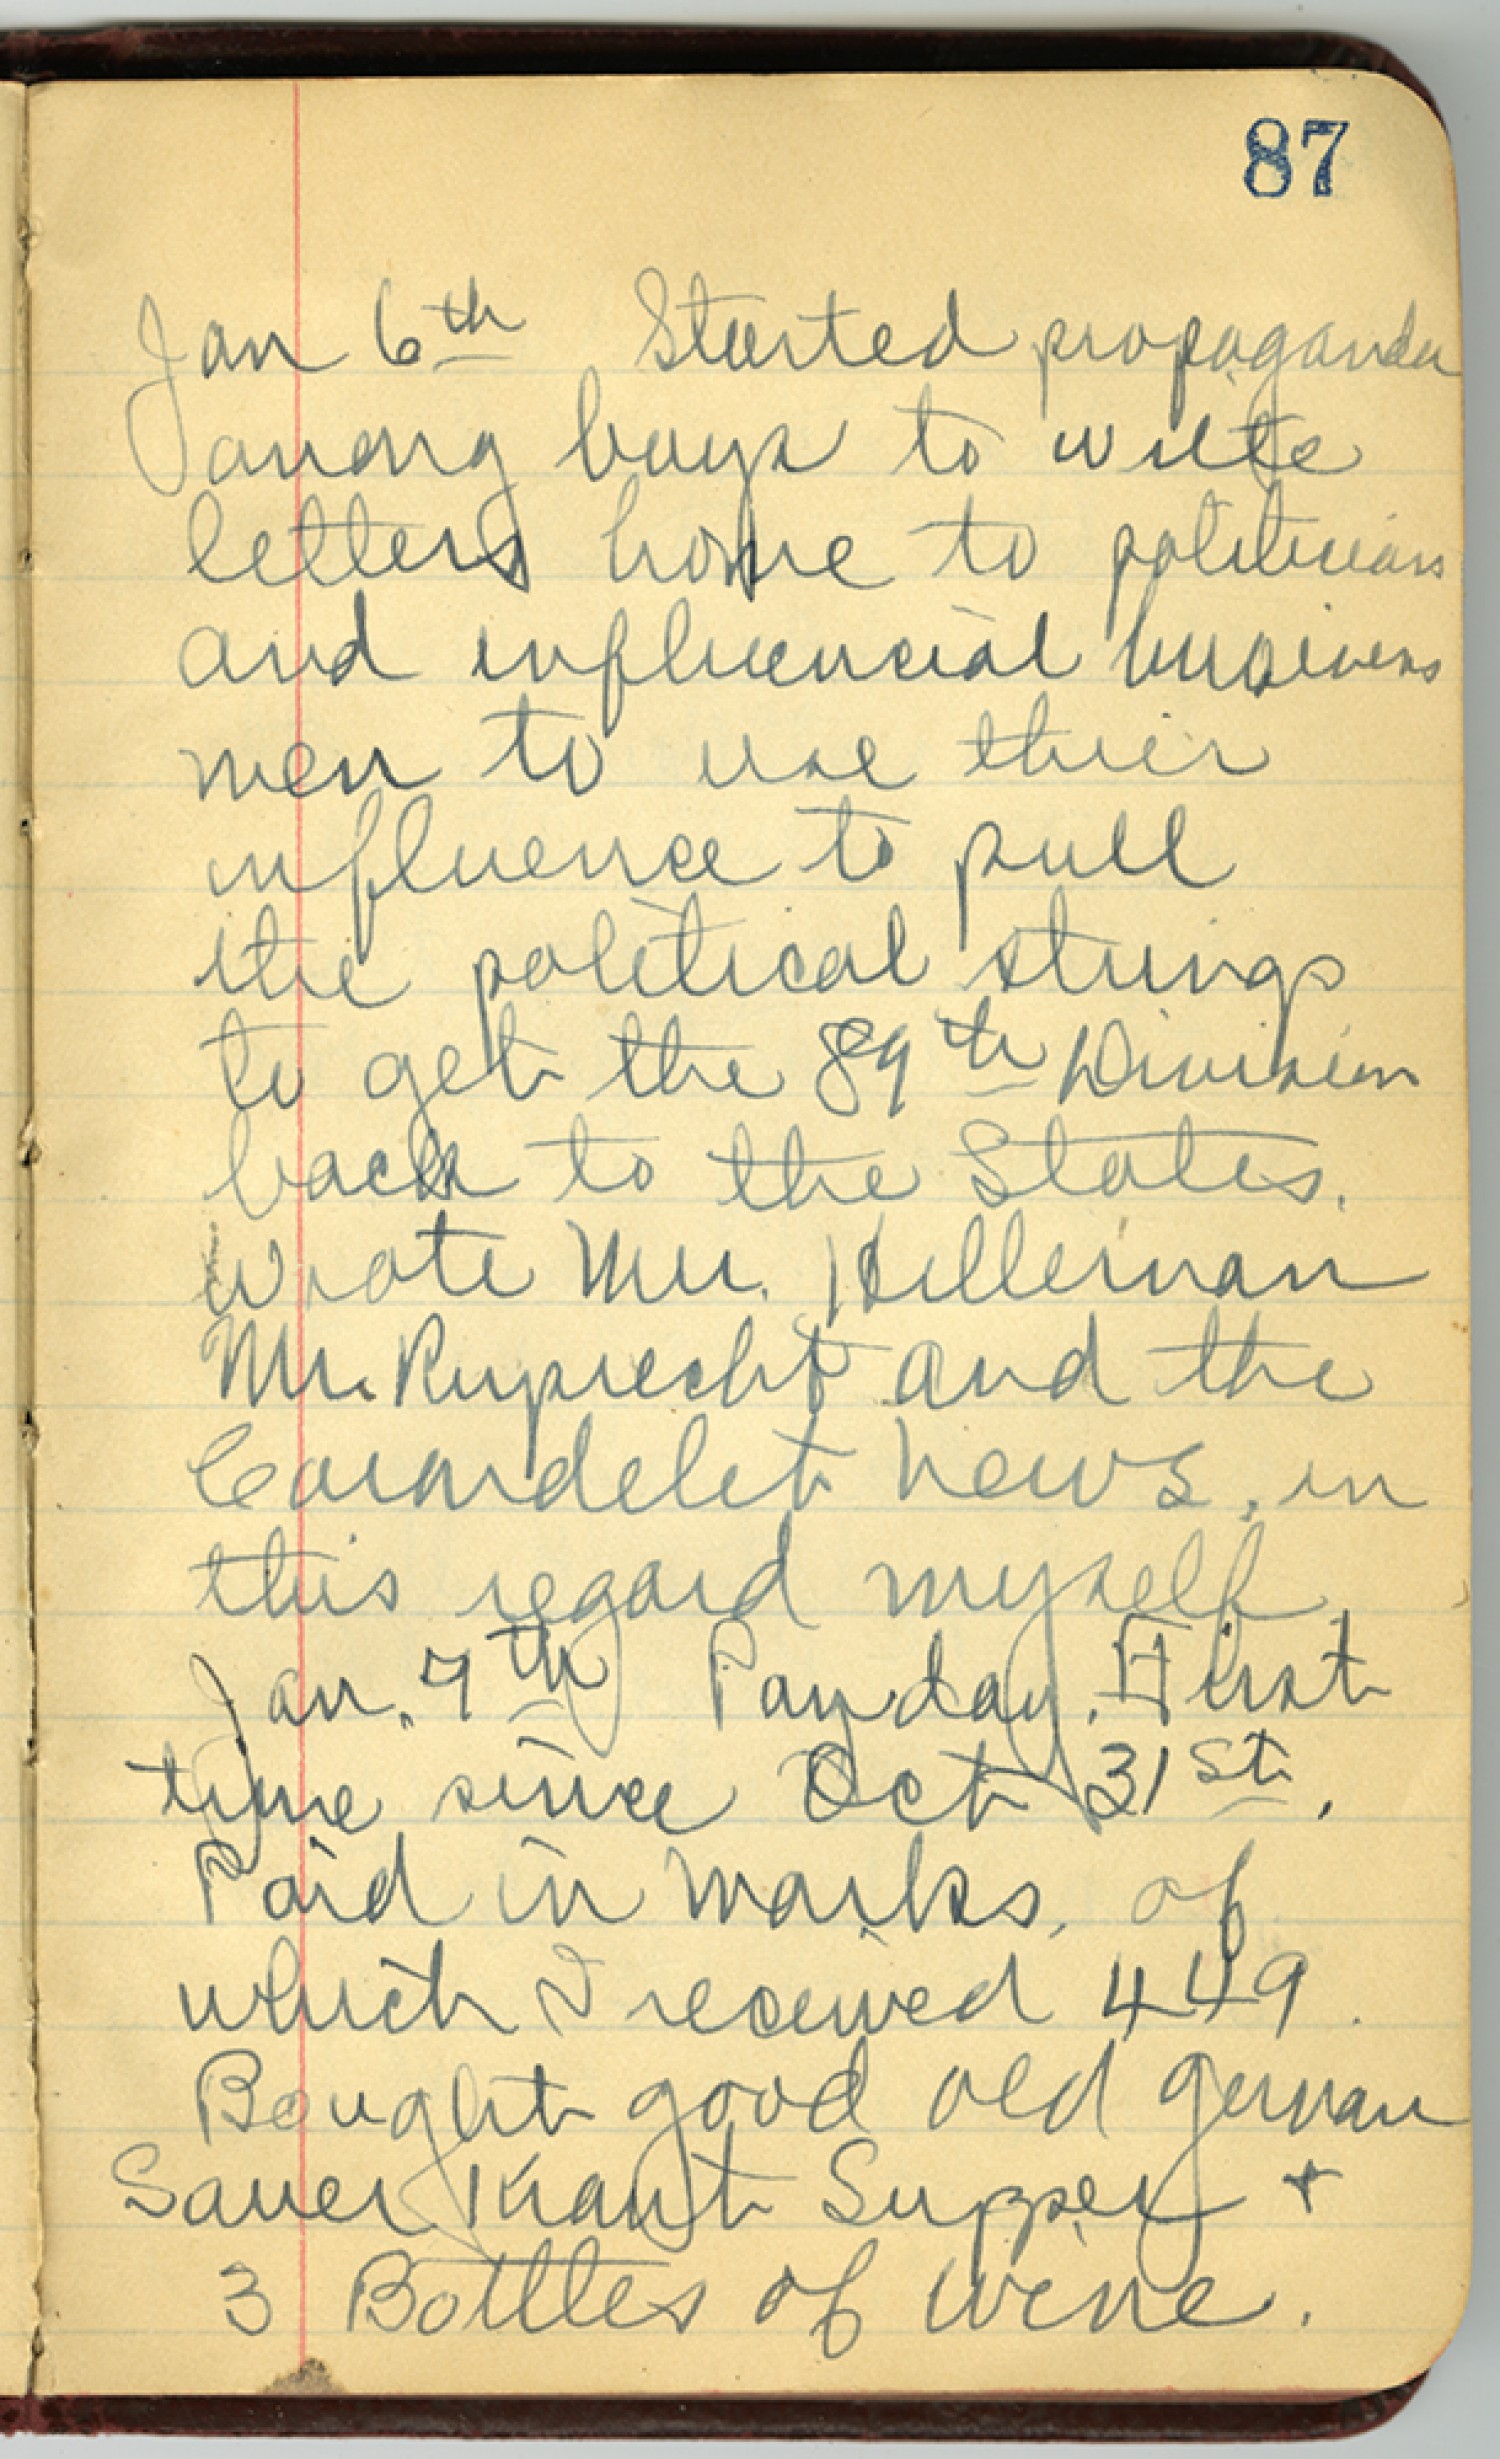 87
Jan 6th Started propaganda
among boys to write
letters home to politicians
and influencial business
men to use their
influence to pull
the political strings
to get the 89th Division
back to the States.
wrote Mr. Hilleman
Mr. Ruprecht and the
Carondelet News, in
this regard myself
Jan. 7th Payday. First
time since Oct 31st.
Paid in marks, of
which I received 449.
Bought good old german
Sauer Kraut Supper +
3 Bottles of wine.